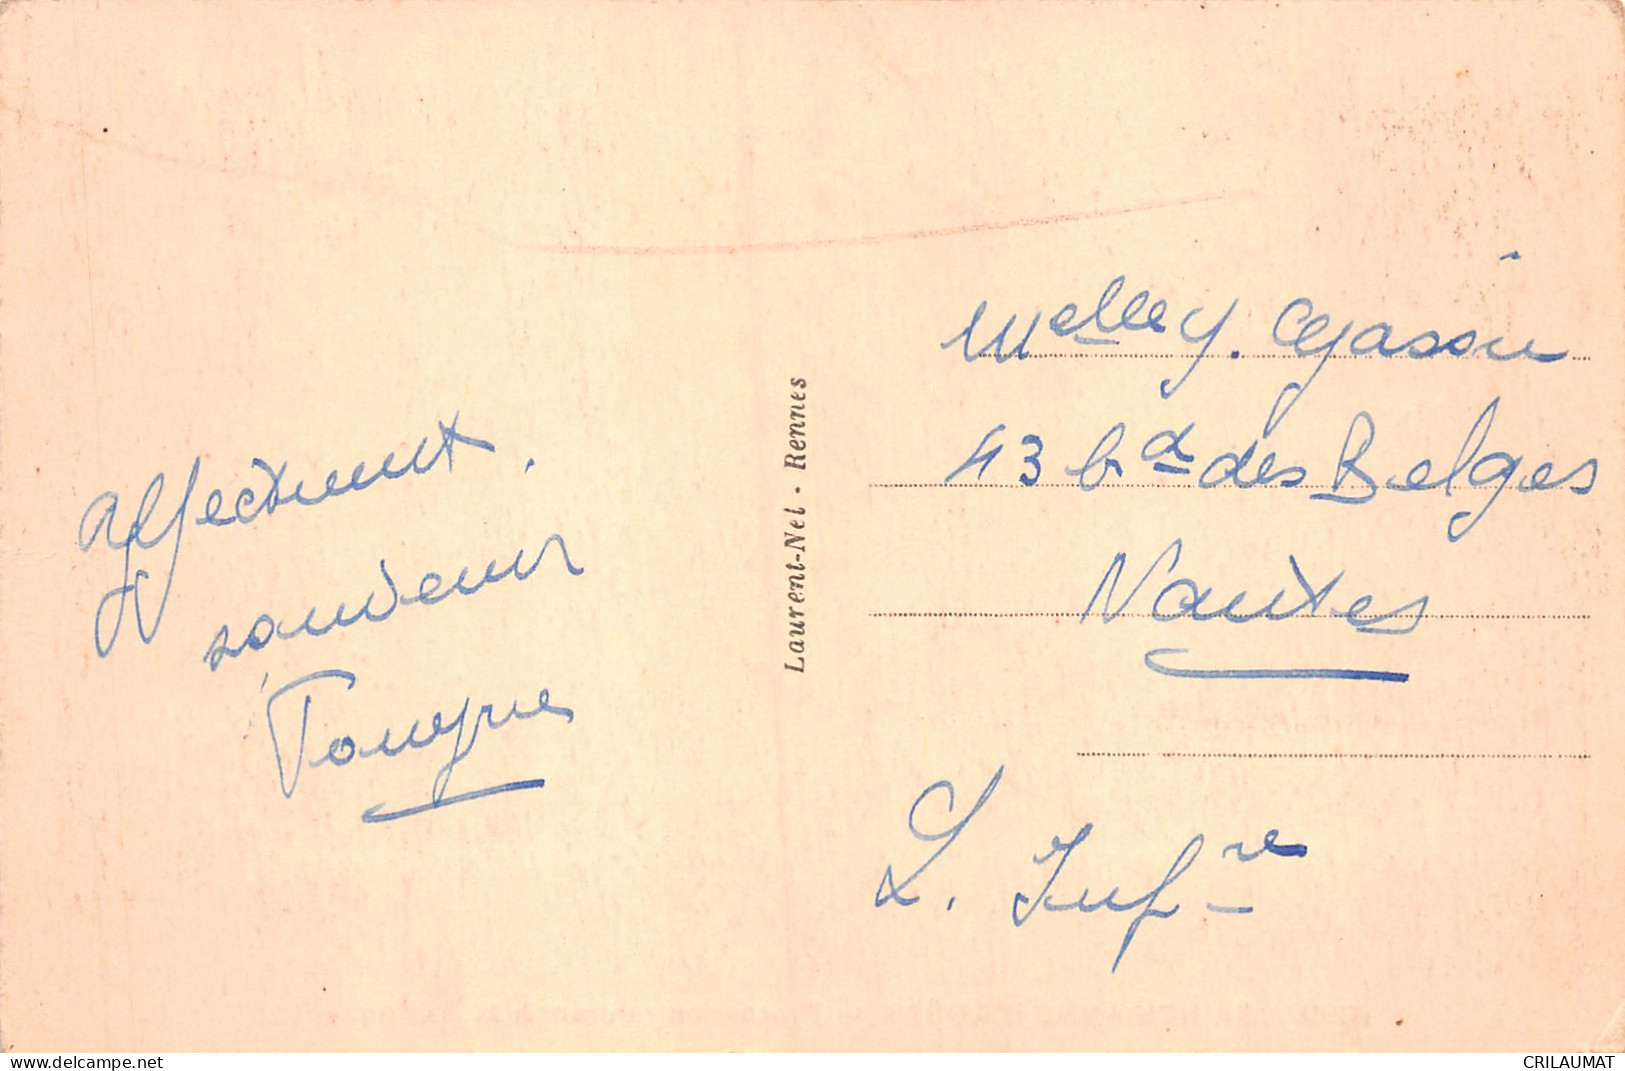 affectueux
souvenir
Laurent-Nel - Rennes
Melle Y.
43 bd des Belges
Nantes
L. Infre
https://www.delcampe.net
CRILAUMAT